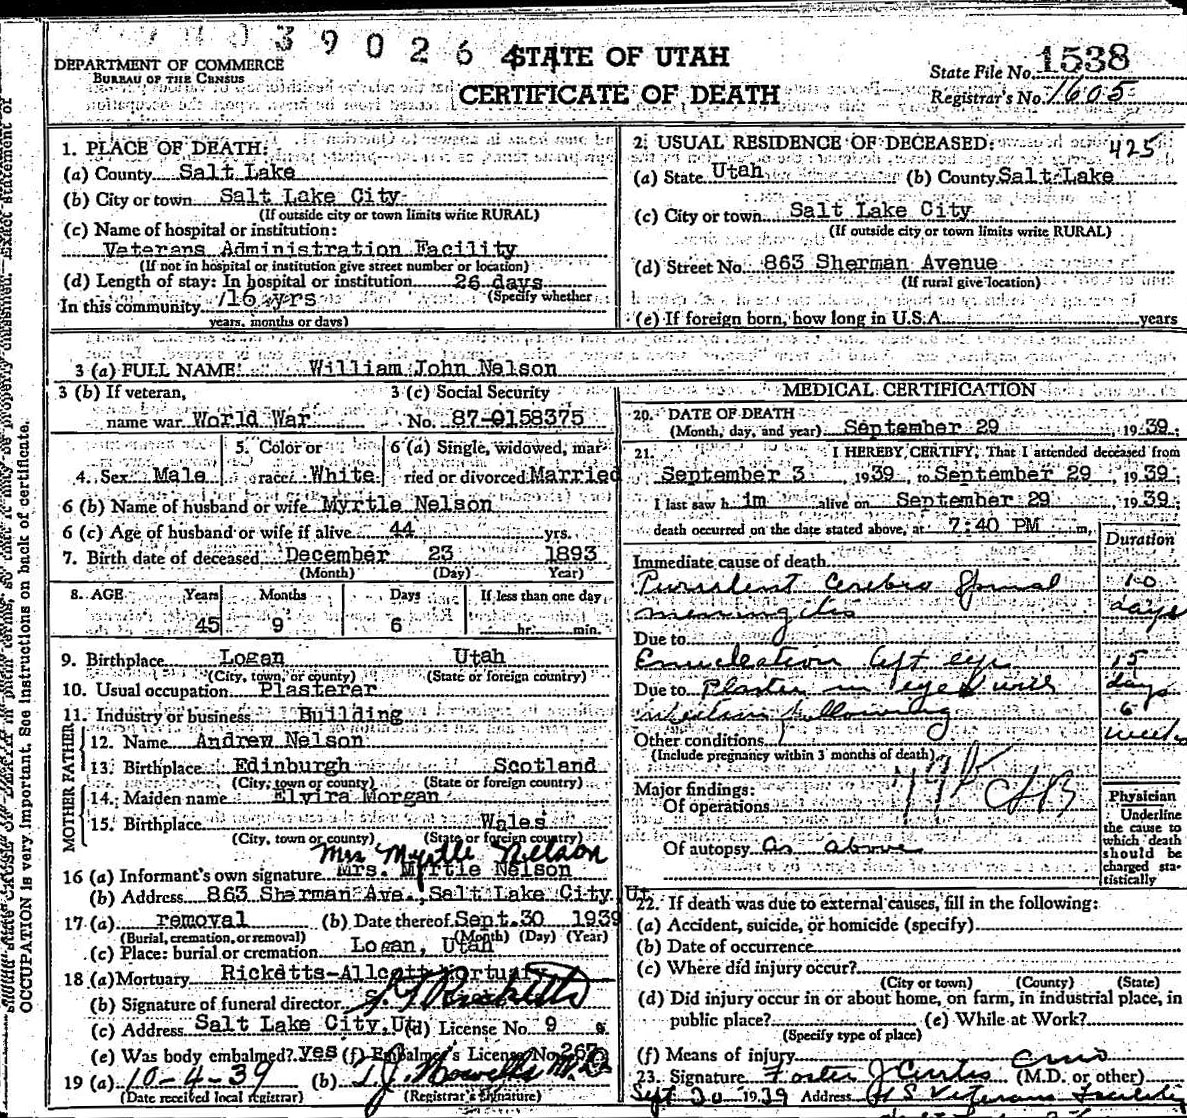 39026
STATE OF UTAH
DEPARTMENT OF COMMERCE
BUREAU OF THE CENSUS
CERTIFICATE OF DEATH
State File No. 1538
Registrar's No. 1605
1. PLACE OF DEATH:
(a) County Salt Lake
(b) City or town Salt Lake City
(If outside city or town limits write RURAL)
(c) Name of hospital or institution:
Veterans Administration Facility
(If not in hospital or institution give street number or location)
(d) Length of stay: In hospital or institution 26 days
(Specify whether
In this community 16 yrs
years, months or days)
2. USUAL RESIDENCE OF DECEASED: 425
(a) State Utah (b) County Salt Lake
(c) City or town Salt Lake City
(If outside city or town limits write RURAL)
(d) Street No. 863 Sherman Avenue
(If rural give location)
(e) If foreign born, how long in U.S.A. years
3 (a) FULL NAME William John Nelson
3 (b) If veteran,
name war World War
3 (c) Social Security
No. 87-0158375
4. Sex Male
5. Color or
race White
6 (a) Single, widowed, mar-
ried or divorced Married
6 (b) Name of husband or wife Myrtle Nelson
6 (c) Age of husband or wife if alive 44 yrs.
7. Birth date of deceased December 23 1893
(Month) (Day) Year)
8. AGE Years Months Days If less than one day
45 9 6 hr. min.
9. Birthplace Logan Utah
(City, town, or county) (State or foreign country)
10. Usual occupation Plasterer
11. Industry or business Building
FATHER
12. Name Andrew Nelson
13. Birthplace Edinburgh Scotland
(City, town or county) (State or foreign country)
MOTHER
14. Maiden name Elvira Morgan
15. Birthplace Wales
(City, town or county) (State or foreign country)
Mrs Myrtle Nelson
16 (a) Informant's own signature Mrs. Myrtle Nelson
(b) Address 863 Sherman Ave., Salt Lake City, Ut.
17 (a) removal (b) Date thereof Sept. 30 1939
(Burial, cremation, or removal) (Month) (Day) (Year)
(c) Place: burial or cremation Logan, Utah
18 (a) Mortuary Ricketts-Allcott Mortuary
(b) Signature of funeral director
(c) Address Salt Lake City, Ut. (d) License No. 9
(e) Was body embalmed? yes (f) Embalmer's License No. 267
19 (a) 10-4-39 (b) T. J. Howells M.D.
(Date received local registrar) (Registrar's Signature)
MEDICAL CERTIFICATION
20. DATE OF DEATH
(Month, day, and year) September 29, 1939;
21. I HEREBY CERTIFY, That I attended deceased from
September 3, 1939, to September 29, 1939;
I last saw him alive on September 29, 1939;
death occurred on the date stated above, at 7:40 PM m.
Duration
Immediate cause of death
Purulent cerebro spinal 10
meningitis days
Due to
Enucleation left eye 15
days
Due to Plaster in eye with
infection following 6
weeks
Other conditions
(Include pregnancy within 3 months of death)
Major findings:
Of operations
Of autopsy As above
Physician
Underline
the cause to
which death
should be
charged sta-
tistically
22. If death was due to external causes, fill in the following:
(a) Accident, suicide, or homicide (specify)
(b) Date of occurrence
(c) Where did injury occur?
(City or town) (County) (State)
(d) Did injury occur in or about home, on farm, in industrial place, in
public place? (e) While at Work?
(Specify type of place)
(f) Means of injury
23. Signature Foster J Curtis (M.D. or other)
Sept 30 1939 Address U S Veterans Facility
OCCUPATION is very important. See instructions on back of certificate.